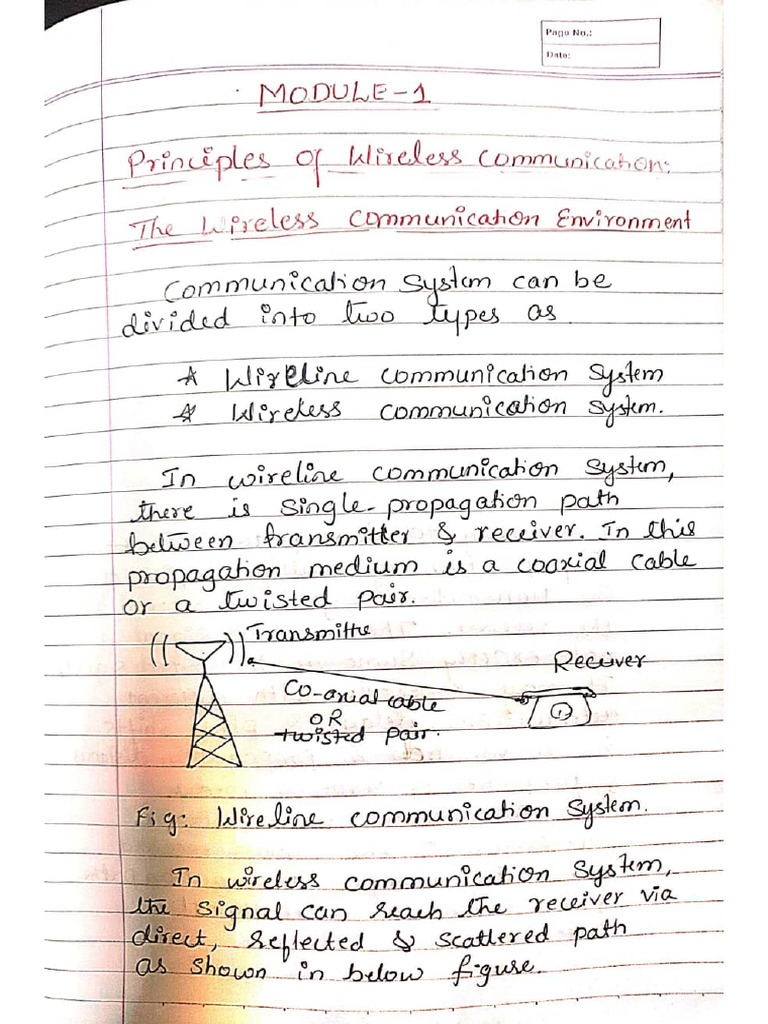 Page No.:
Date:
MODULE-1
Principles of Wireless Communication:
The Wireless Communication Environment
Communication System can be
divided into two types as
* Wireline communication system
* Wireless communication system.
In wireline communication system,
there is single-propagation path
between transmitter & receiver. In this
propagation medium is a coaxial cable
or a twisted pair.
Transmitte
Receiver
Co-axial cable
OR
twisted pair.
Fig: Wireline communication system.
In wireless communication system,
the signal can reach the receiver via
direct, reflected & scattered path
as shown in below figure.